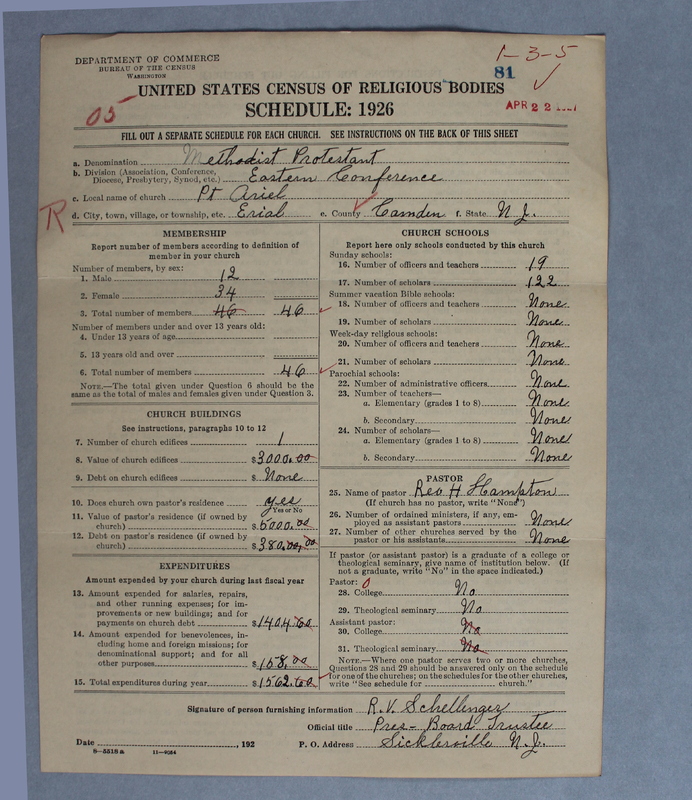 1-3-5
DEPARTMENT OF COMMERCE
BUREAU OF THE CENSUS
WASHINGTON
81
UNITED STATES CENSUS OF RELIGIOUS BODIES
05
SCHEDULE: 1926
APR 22
FILL OUT A SEPARATE SCHEDULE FOR EACH CHURCH. SEE INSTRUCTIONS ON THE BACK OF THIS SHEET
a. Denomination Methodist Protestant
b. Division (Association, Conference, Diocese, Presbytery, Synod, etc.) Eastern Conference
c. Local name of church Pt Ariel
R
d. City, town, village, or township, etc. Erial e. County Camden f. State N. J.
MEMBERSHIP
Report number of members according to definition of
member in your church
Number of members, by sex:
1. Male 12
2. Female 34
3. Total number of members 46 46
Number of members under and over 13 years old:
4. Under 13 years of age
5. 13 years old and over
6. Total number of members 46
NOTE.—The total given under Question 6 should be
same as the total of males and females given under Question 3.
CHURCH BUILDINGS
See instructions, paragraphs 10 to 12
7. Number of church edifices 1
8. Value of church edifices $3000.00
9. Debt on church edifices $None
10. Does church own pastor's residence yes
Yes or No
11. Value of pastor's residence (if owned by
church) $5000.00
12. Debt on pastor's residence (if owned by
church) $380.00
EXPENDITURES
Amount expended by your church during last fiscal year
13. Amount expended for salaries, repairs,
and other running expenses; for im-
provements or new buildings; and for
payments on church debt $1404.60
14. Amount expended for benevolences, in-
cluding home and foreign missions; for
denominational support; and for all
other purposes $158.00
15. Total expenditures during year $1562.60
CHURCH SCHOOLS
Report here only schools conducted by this church
Sunday schools:
16. Number of officers and teachers 19
17. Number of scholars 122
Summer vacation Bible schools:
18. Number of officers and teachers None
19. Number of scholars None
Week-day religious schools:
20. Number of officers and teachers None
21. Number of scholars None
Parochial schools:
22. Number of administrative officers None
23. Number of teachers—
a. Elementary (grades 1 to 8) None
b. Secondary None
24. Number of scholars—
a. Elementary (grades 1 to 8) None
b. Secondary None
PASTOR
25. Name of pastor Rev H Hampton
(If church has no pastor, write "None")
26. Number of ordained ministers, if any, em-
ployed as assistant pastors None
27. Number of other churches served by the
pastor or his assistants None
If pastor (or assistant pastor) is a graduate of a college or
theological seminary, give name of institution below. (If
not a graduate, write "No" in the space indicated.)
Pastor: 0
28. College No
29. Theological seminary No
Assistant pastor:
30. College No
31. Theological seminary No
NOTE.—Where one pastor serves two or more churches,
Questions 28 and 29 should be answered only on the schedule
for one of the churches; on the schedules for the other churches,
write "See schedule for church."
Signature of person furnishing information R. V. Schellinger
Official title Pres- Board Trustee
Date , 192 P. O. Address Sicklerville N. J.
8—5518 a 11—9034